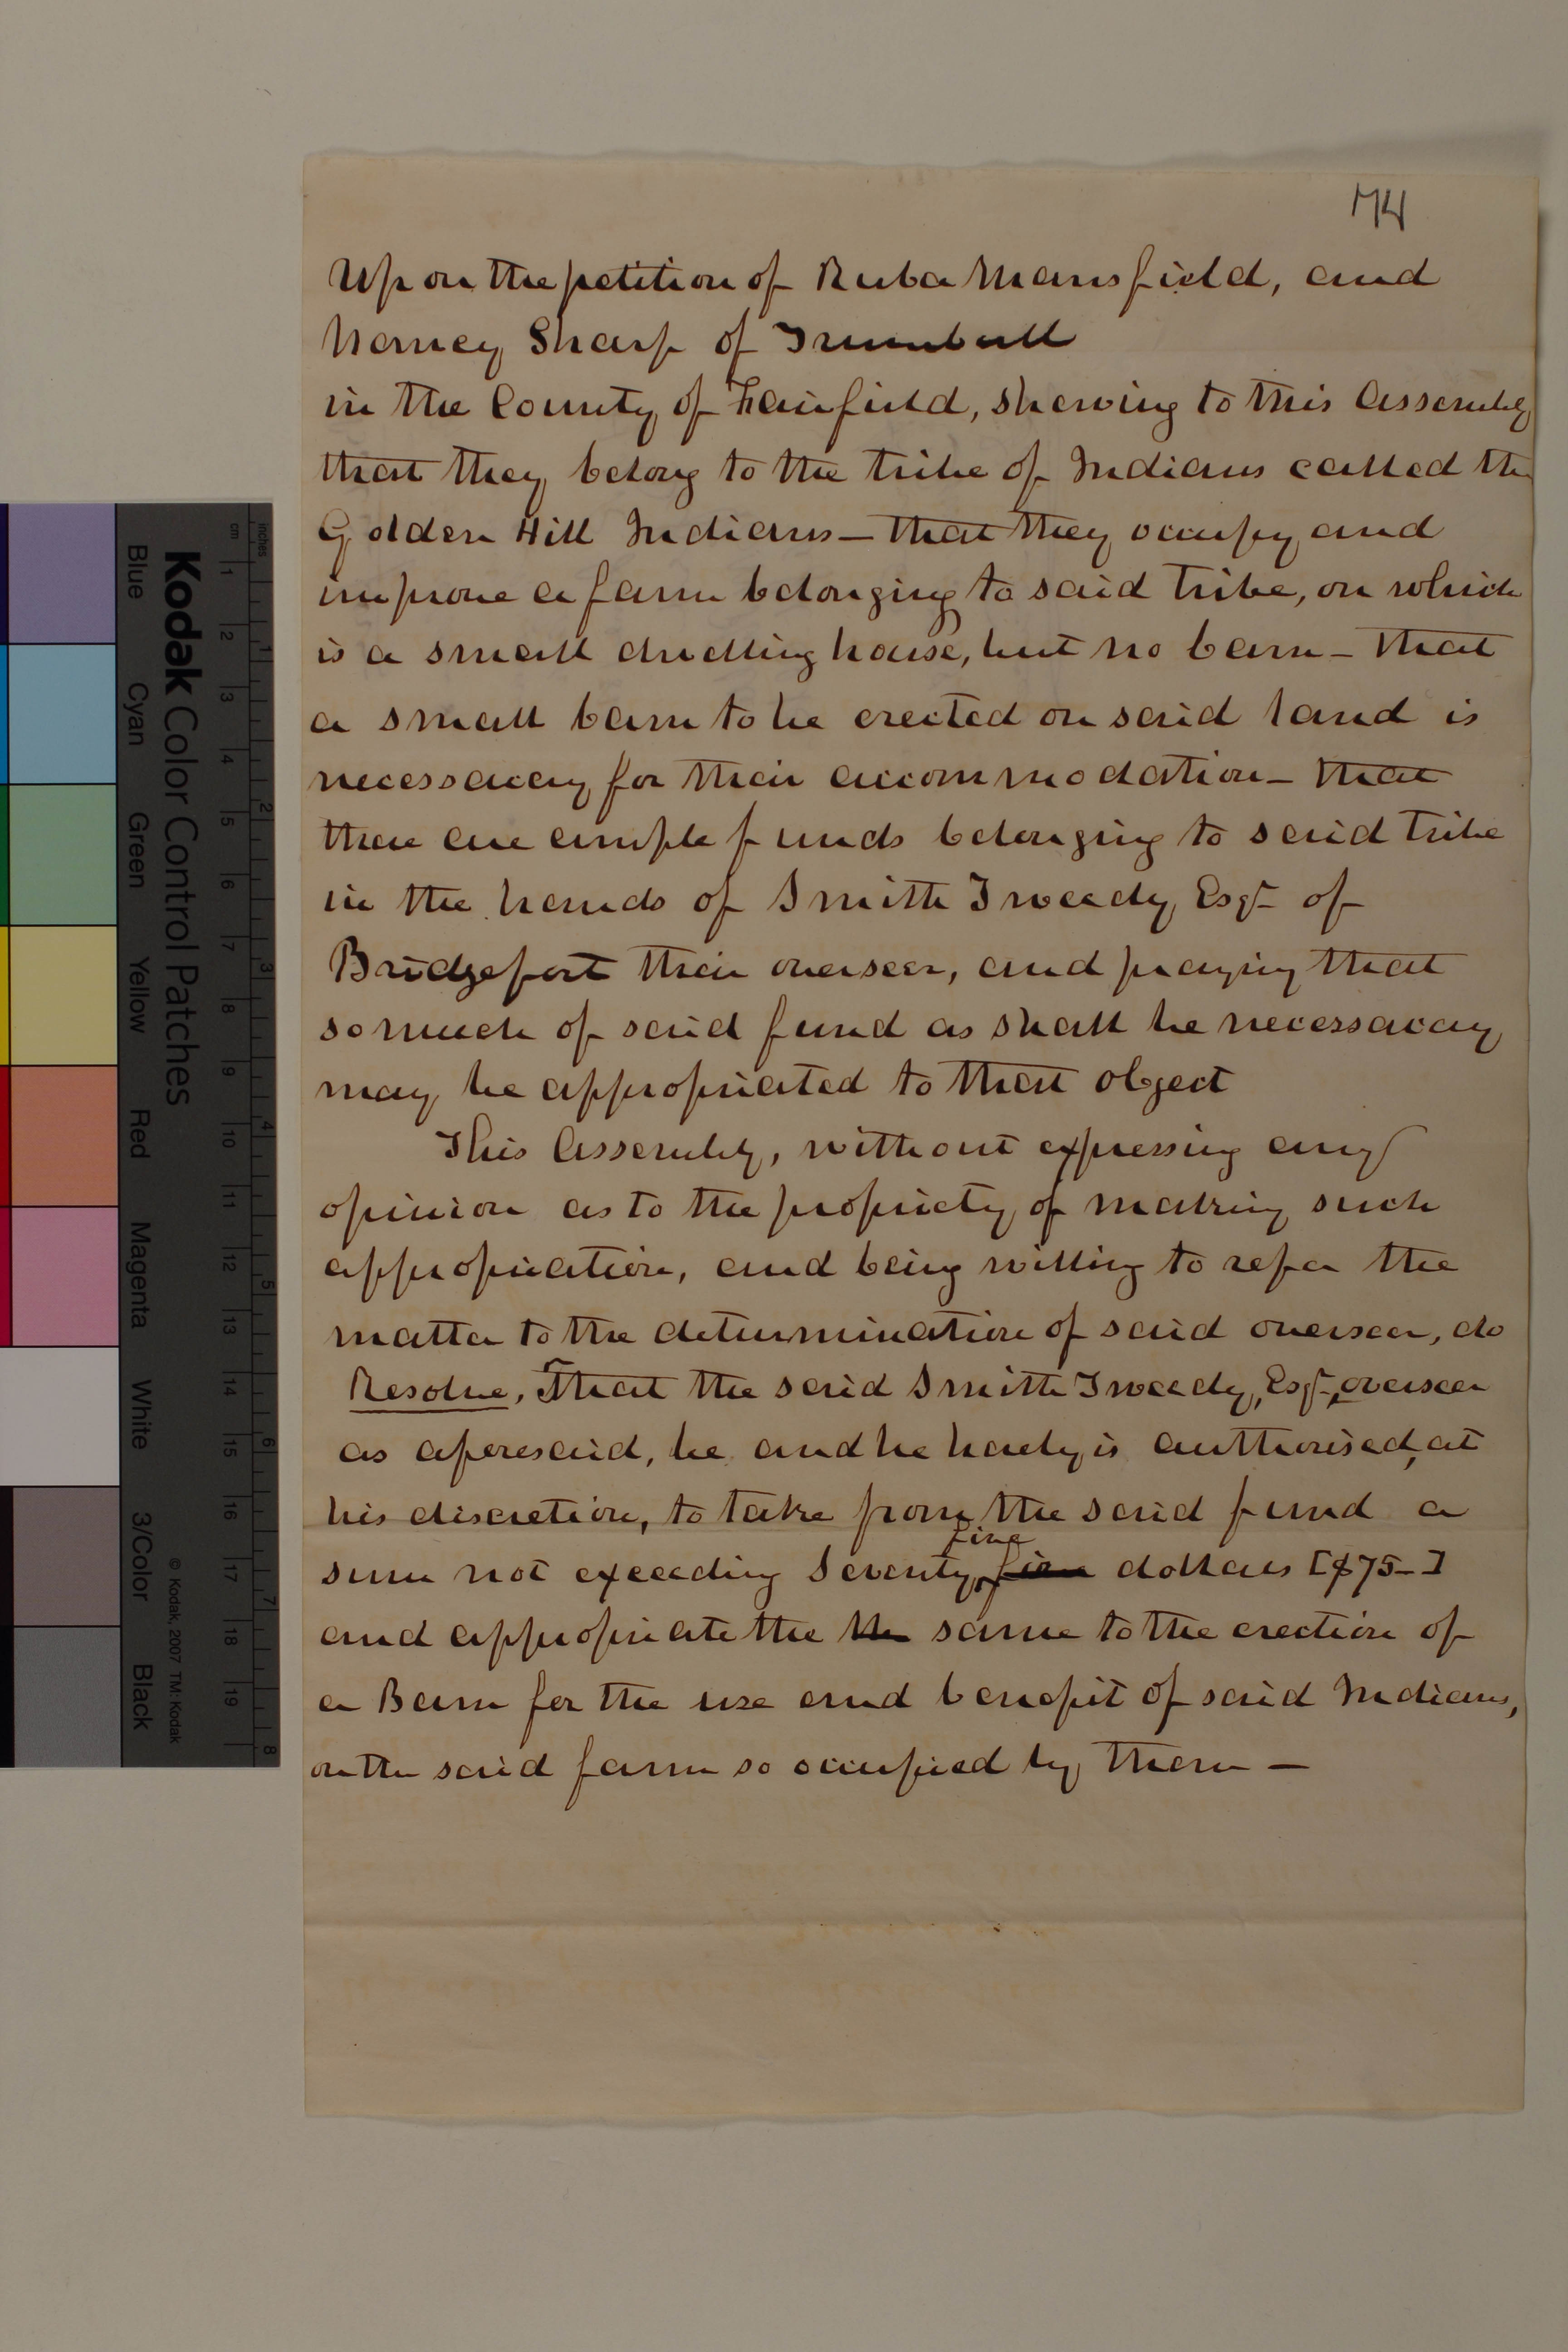 74
Upon the petition of Ruba Mansfield, and
Nancy Sharp of Trumbull
in the County of Fairfield, shewing to this Assembly
that they belong to the tribe of Indians called the
Golden Hill Indians — that they occupy and
improve a farm belonging to said tribe, on which
is a small dwelling house, but no barn — that
a small barn to be erected on said land is
necessary for their accommodation — that
there are ample funds belonging to said tribe
in the hands of Smith Tweedy, Esqr of
Bridgeport their overseer, and praying that
so much of said fund as shall be necessary
may be appropriated to that object
This Assembly, without expressing any
opinion as to the propriety of making such
appropriation, and being willing to refer the
matter to the determination of said overseer, do
Resolve, That the said Smith Tweedy, Esqr, overseer
as aforesaid, be and he hereby is authorised, at
his discretion, to take from the said fund a
five
sum not exceeding Seventy five dollars [$75–]
and appropriate the the same to the erection of
a Barn for the use and benefit of said Indians,
on the said farm so occupied by them —
inches
cm
1 2 3 4 5 6 7 8 9 10 11 12 13 14 15 16 17 18 19
1 2 3 4 5 6 7 8
Kodak Color Control Patches
Blue Cyan Green Yellow Red Magenta White 3/Color Black
© Kodak, 2007 TM: Kodak